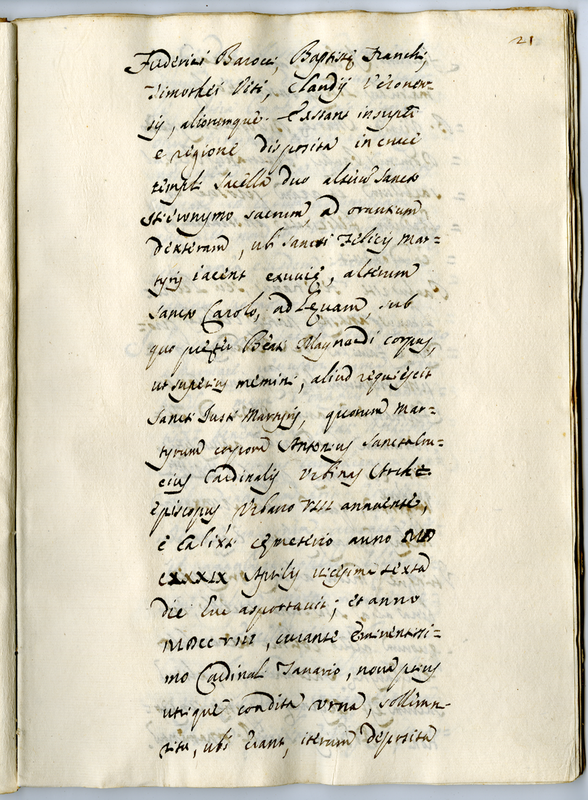 21
Federici Barocci, Baptistę Franchi,
Timothei Viti, Claudij Veronen-
sis, aliorumque. Extant insuper
e regione disposita in cruce
templi sacella duo alterum Sancto
Hieronymo sacrum, ad orantium
dexteram, ubi Sancti Felicis Mar=
tyris iacent exuuię, alterum
Sancto Carolo, ad Lęuam, sub
quo pręter Beati Maynardi corpus,
ut superius memini, aliud requiescit
Sancti Justi Martyris, quorum Mar=
tyrum corpora Antonius Sanctacru=
cius Cardinalis Urbinas Archi-
episcopus Urbano VIII annuente,
e Calixti cęmeterio anno MD
CXXXIX Aprilis vicesima sexta
die huc asportauit; et anno
MDCCVIII, curante Eminentissi=
mo Cardinali Tanario, noua prius
utrique condita urna, sollemni
ritu, ubi erant, iterum deposita